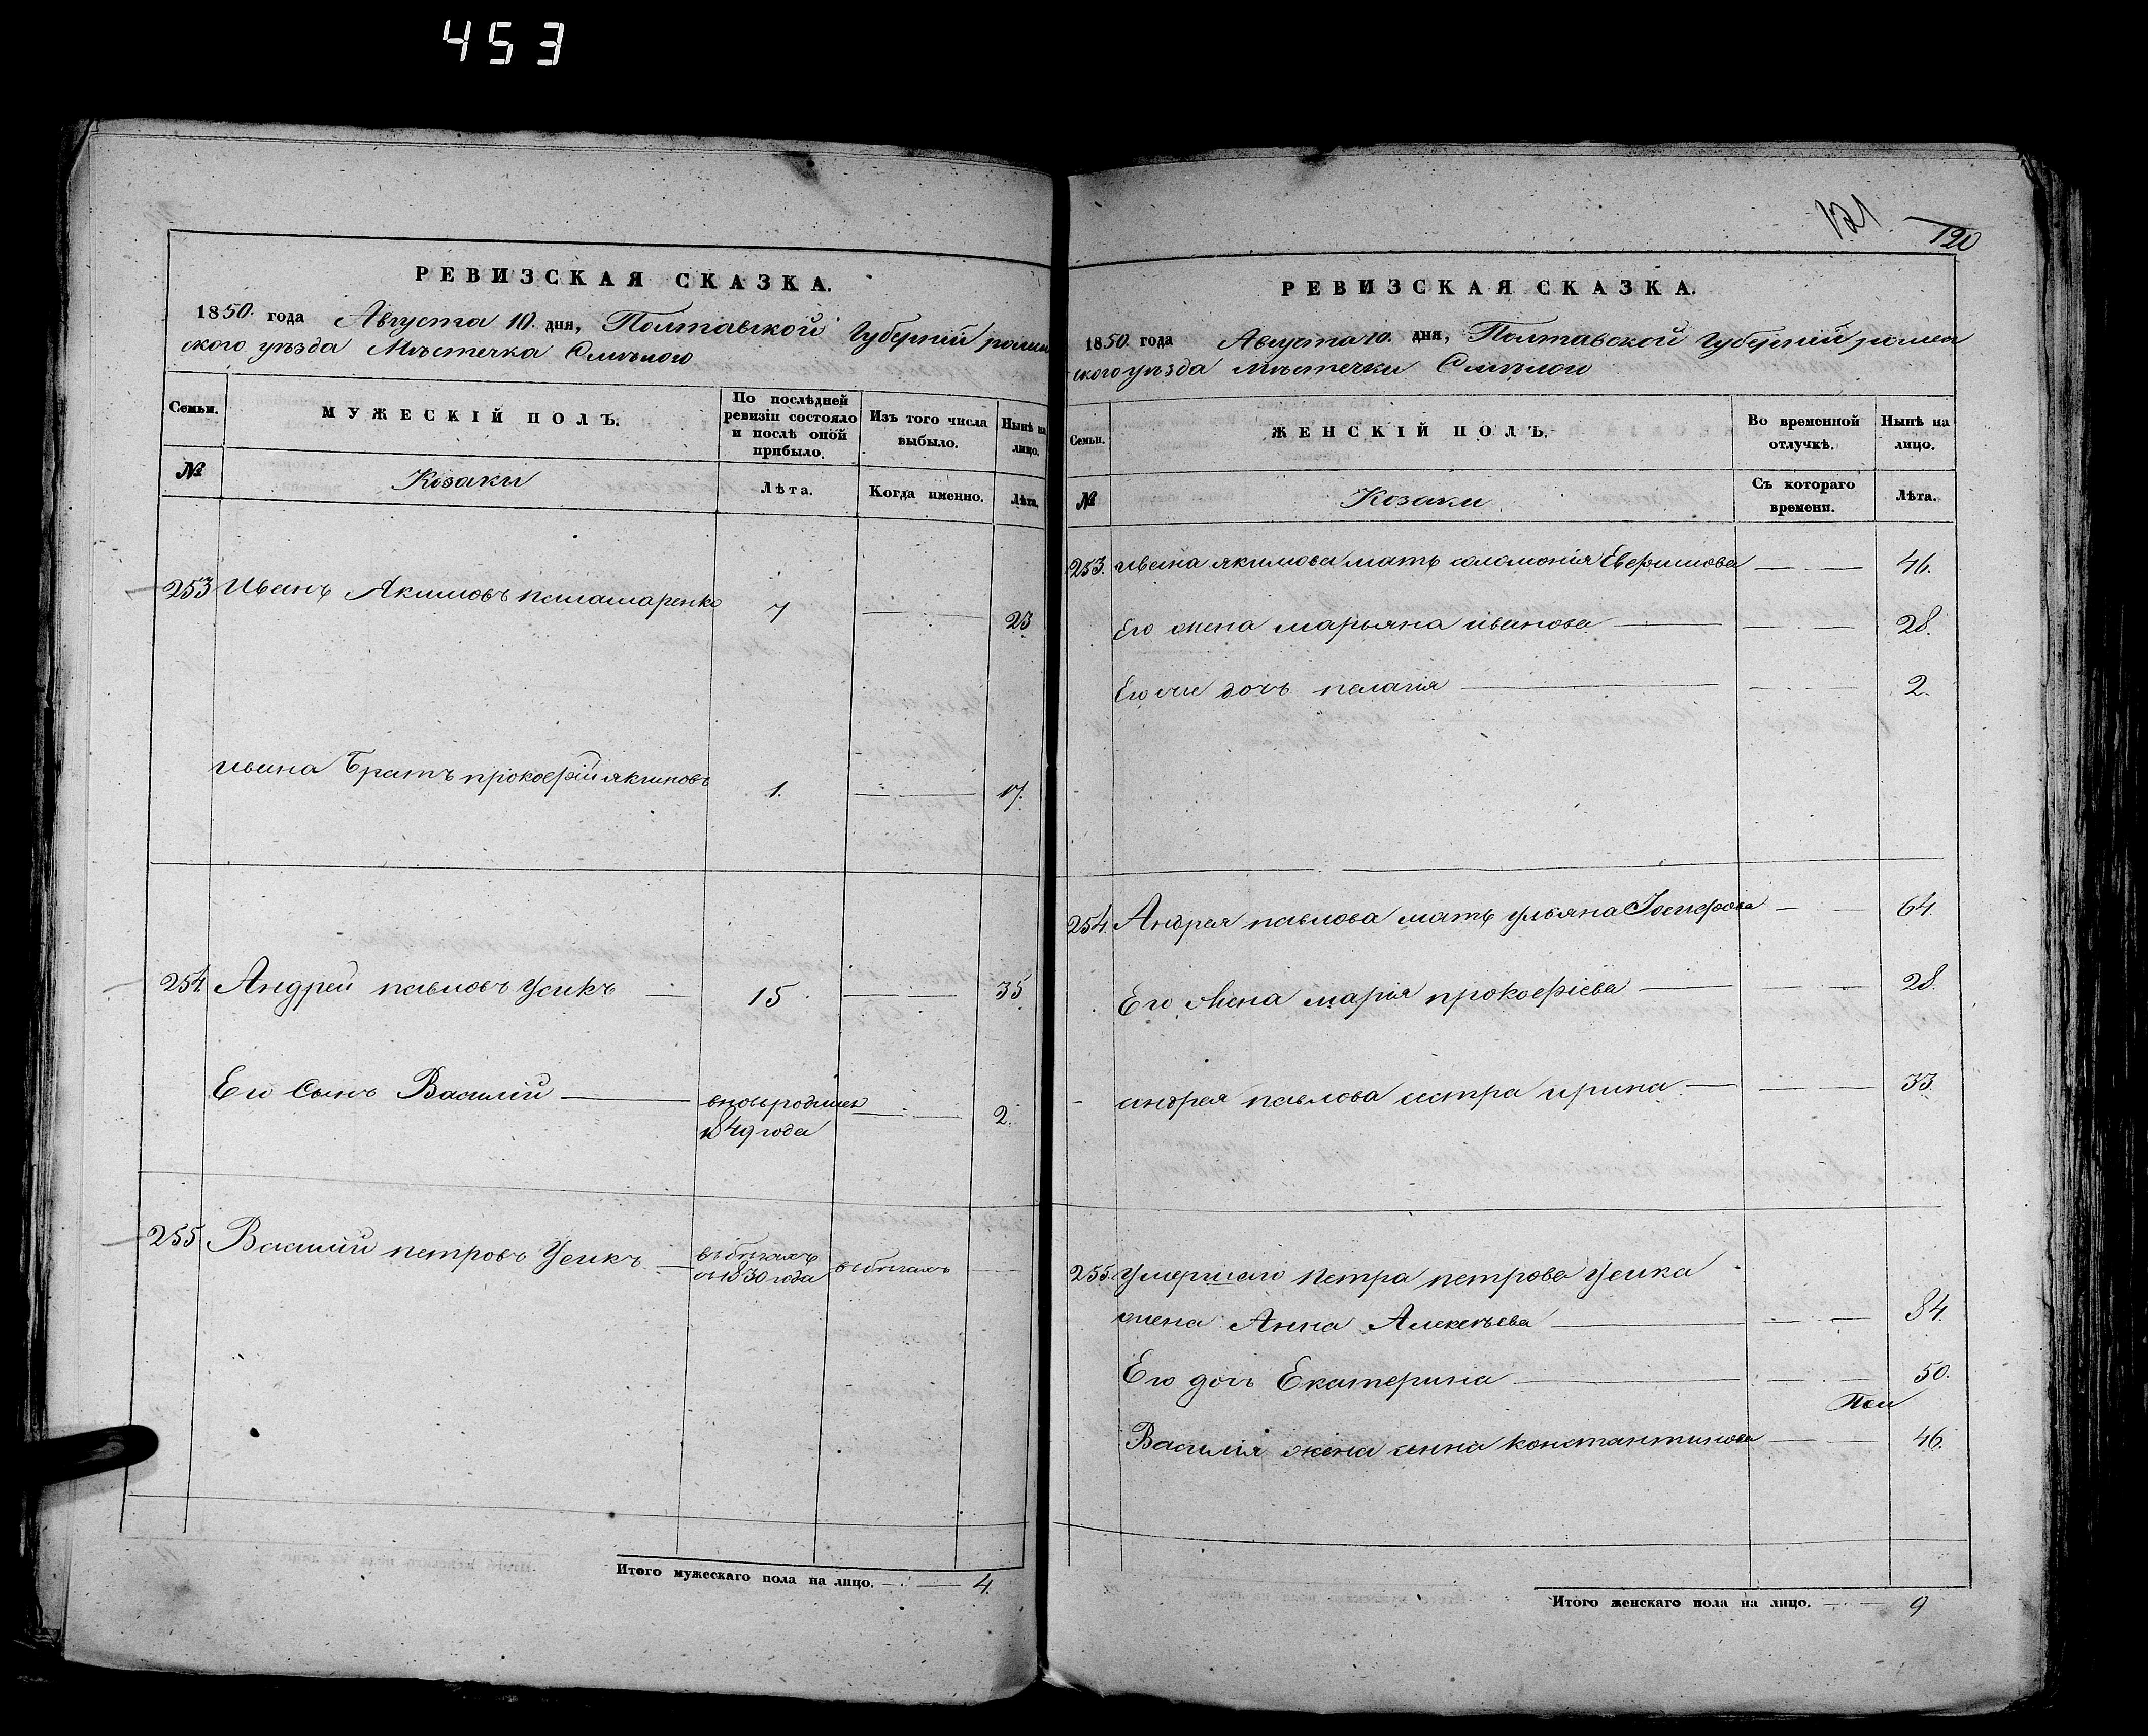 453
РЕВИЗСКАЯ СКАЗКА.
1850. года Августа 10. дня, Полтавской Губерніи ромен
ского уѣзда Мѣстечка Смѣлого
Семьи.
МУЖЕСКІЙ ПОЛЪ.
По послѣдней ревизіи состояло и послѣ оной прибыло.
Изъ того числа выбыло.
Нынѣ на лицо.
№
Козаки
Лѣта.
Когда именно.
Лѣта.
253 Иванъ Акимовъ паламаренко 7 — 23
ивана Братъ прокофій якимовъ 1. — 17.
254 Андрей павловъ Усикъ — 15 — 35
Его Сынъ Василій — вновь рожден — 2.
1849 года
255 Василий петровъ Усикъ — въ бѣгахъ въ бѣгахъ —
съ 1830 года
Итого мужескаго пола на лицо. — 4.
121
120
РЕВИЗСКАЯ СКАЗКА.
1850. года Августа 10. дня, Полтавской Губерніи ромен
ского уѣзда мѣстечки Смѣлои
Семьи.
ЖЕНСКІЙ ПОЛЪ.
Во временной отлучкѣ.
Нынѣ на лицо.
№
Козаки
Съ котораго времени.
Лѣта.
253. ивана якимова мать соломонія — 46.
Его жена марьяна иванова — 28.
Его же дочь пелагія — 2.
254. Андрея павлова мать ульяна Іосифова — 64.
Его Жена марія прокофіева — 28.
андрея павлова сестра ирина — 33.
255. Умершаго Петра петрова Усика
жена Анна Алексѣева — 84.
Его дочь Екатерина — 50.
Василія жена анна константинова — 46.
Итого женскаго пола на лицо. — 9